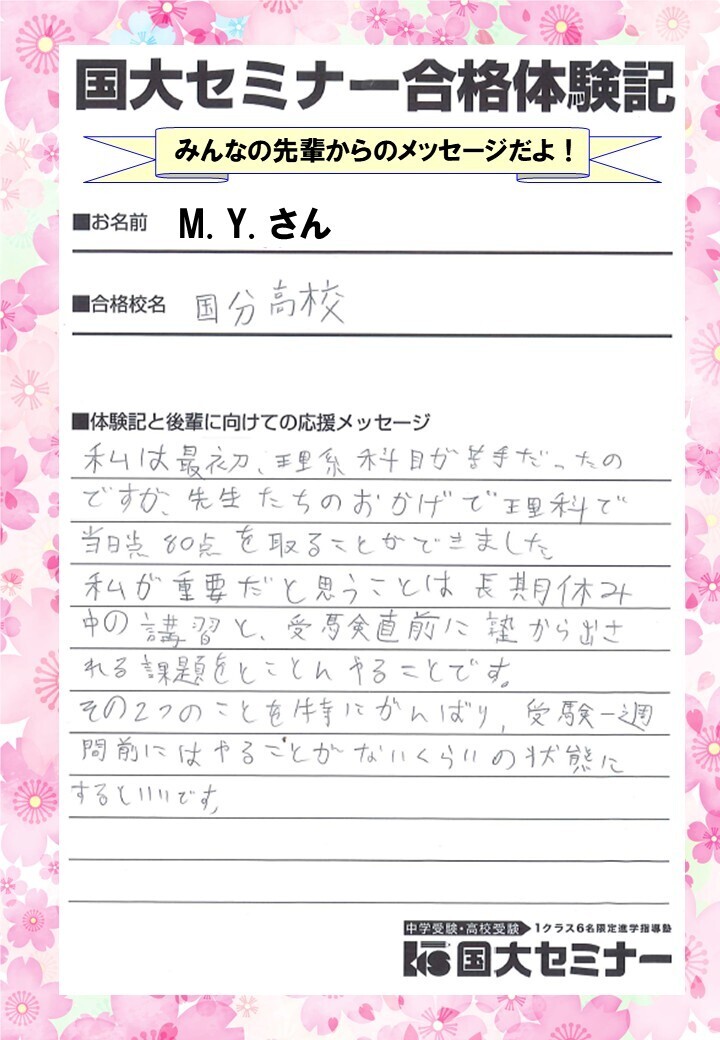 国大セミナー合格体験記
みんなの先輩からのメッセージだよ！
■お名前 M. Y. さん
■合格校名 国分高校
■体験記と後輩に向けての応援メッセージ
私は最初、理系科目が苦手だったの
ですが、先生たちのおかげで理科で
当日点80点を取ることができました
私が重要だと思うことは長期休み
中の講習と、受験直前に塾から出さ
れる課題をとことんやることです。
その2つのことを特にがんばり、受験一週
間前にはやることがないくらいの状態に
するといいです。
中学受験・高校受験 1クラス6名限定進学指導塾
KS 国大セミナー